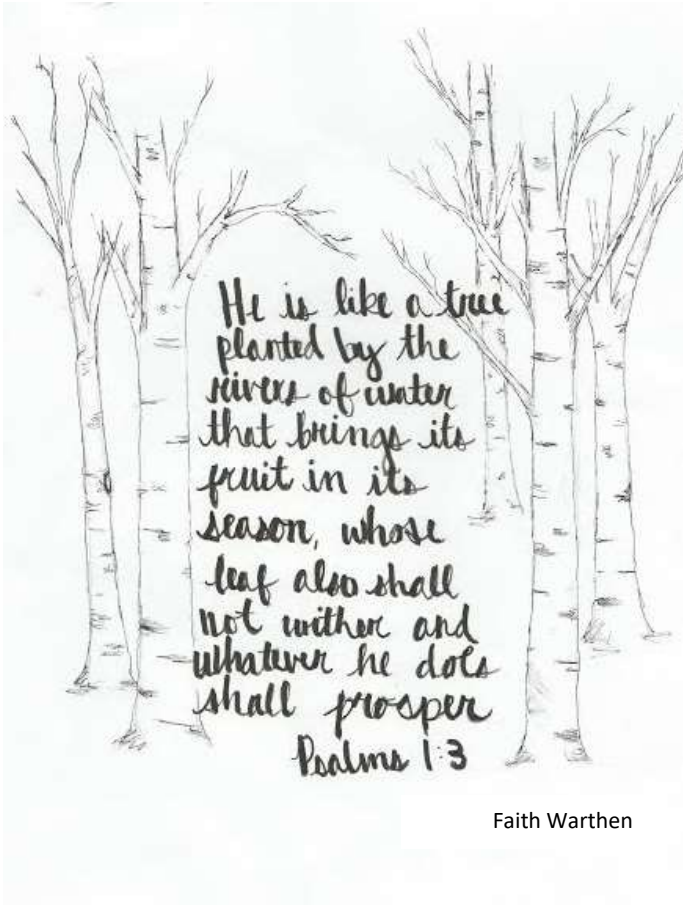 He is like a tree
planted by the
rivers of water
that brings its
fruit in its
season, whose
leaf also shall
not wither and
whatever he does
shall prosper
Psalms 1:3
Faith Warthen